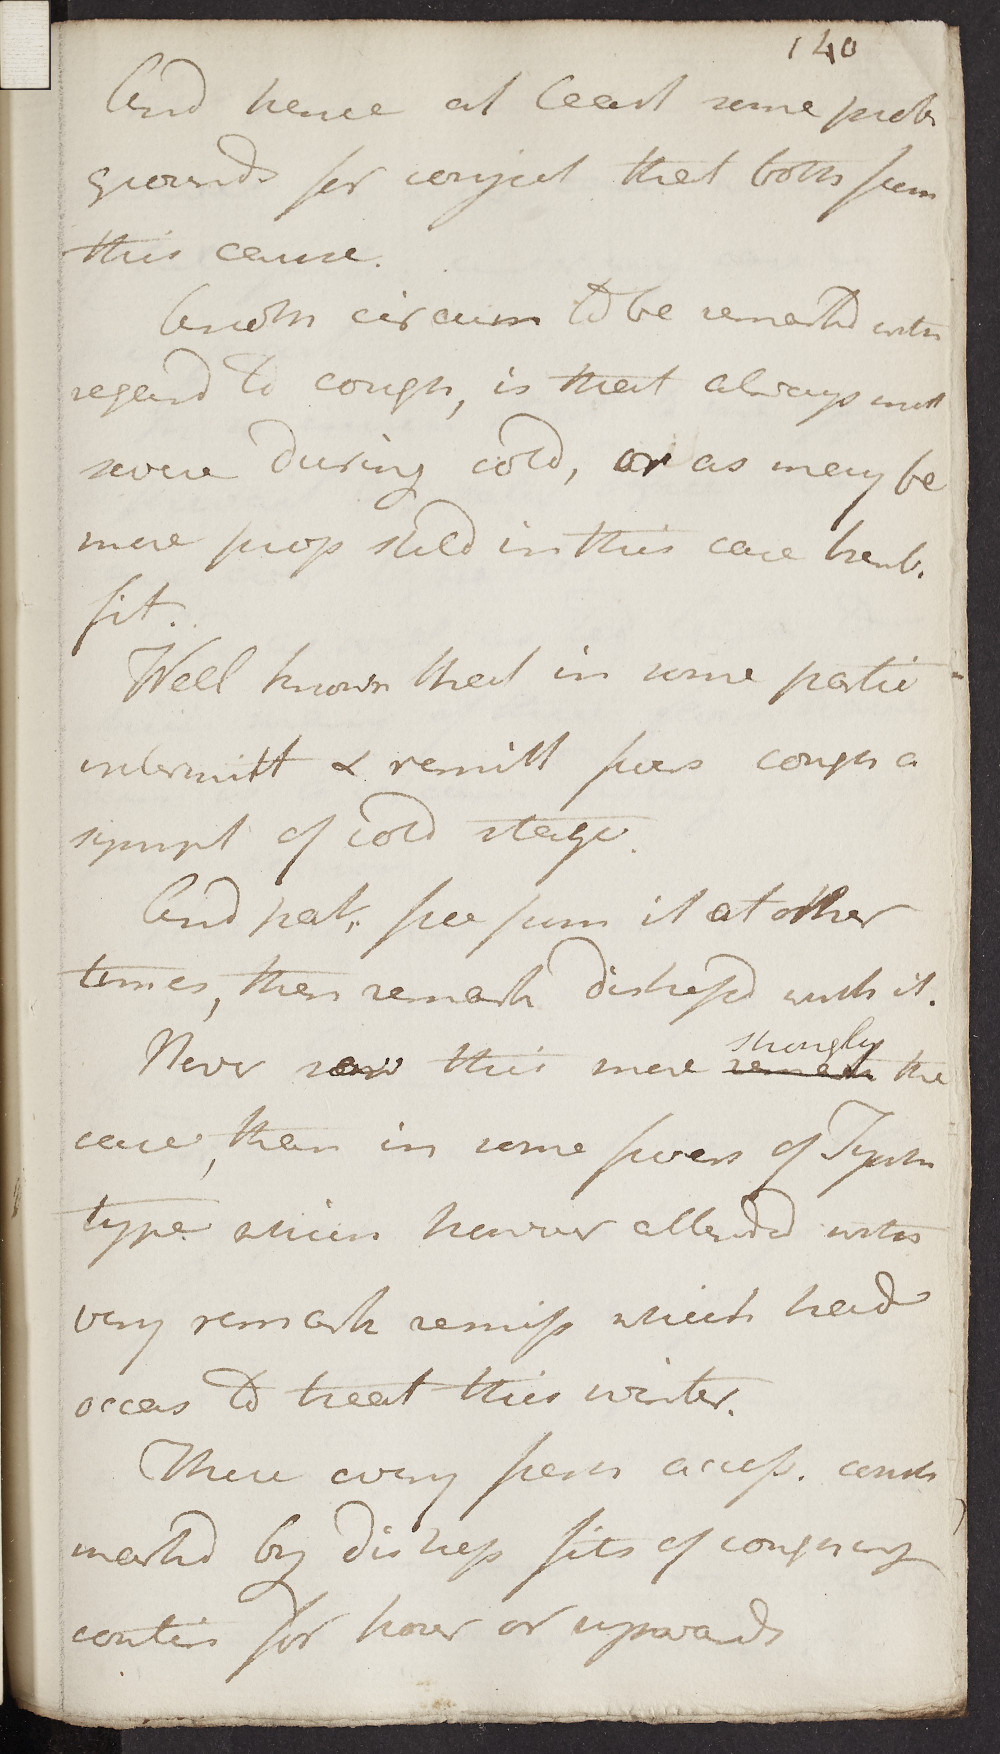 140
And hence at least some prob
grounds for conject that both from
this cause.
Anoth circum to be remarkd with
regard to cough, is that always most
severe during cold, or as may be
more prop stiled in this case
fit.
Well known that in some partic
intermitt & remitt fevers cough a
sympt of cold stage.
And pat. free from it at other
times, then remark distressd with it.
Never saw this more strongly the
case, than in some fevers of Typh
type which however attended with
very remark remiss which had
occas to treat this winter.
There every fresh access. const
markd by distress fits of coughing
contin for hour or upwards